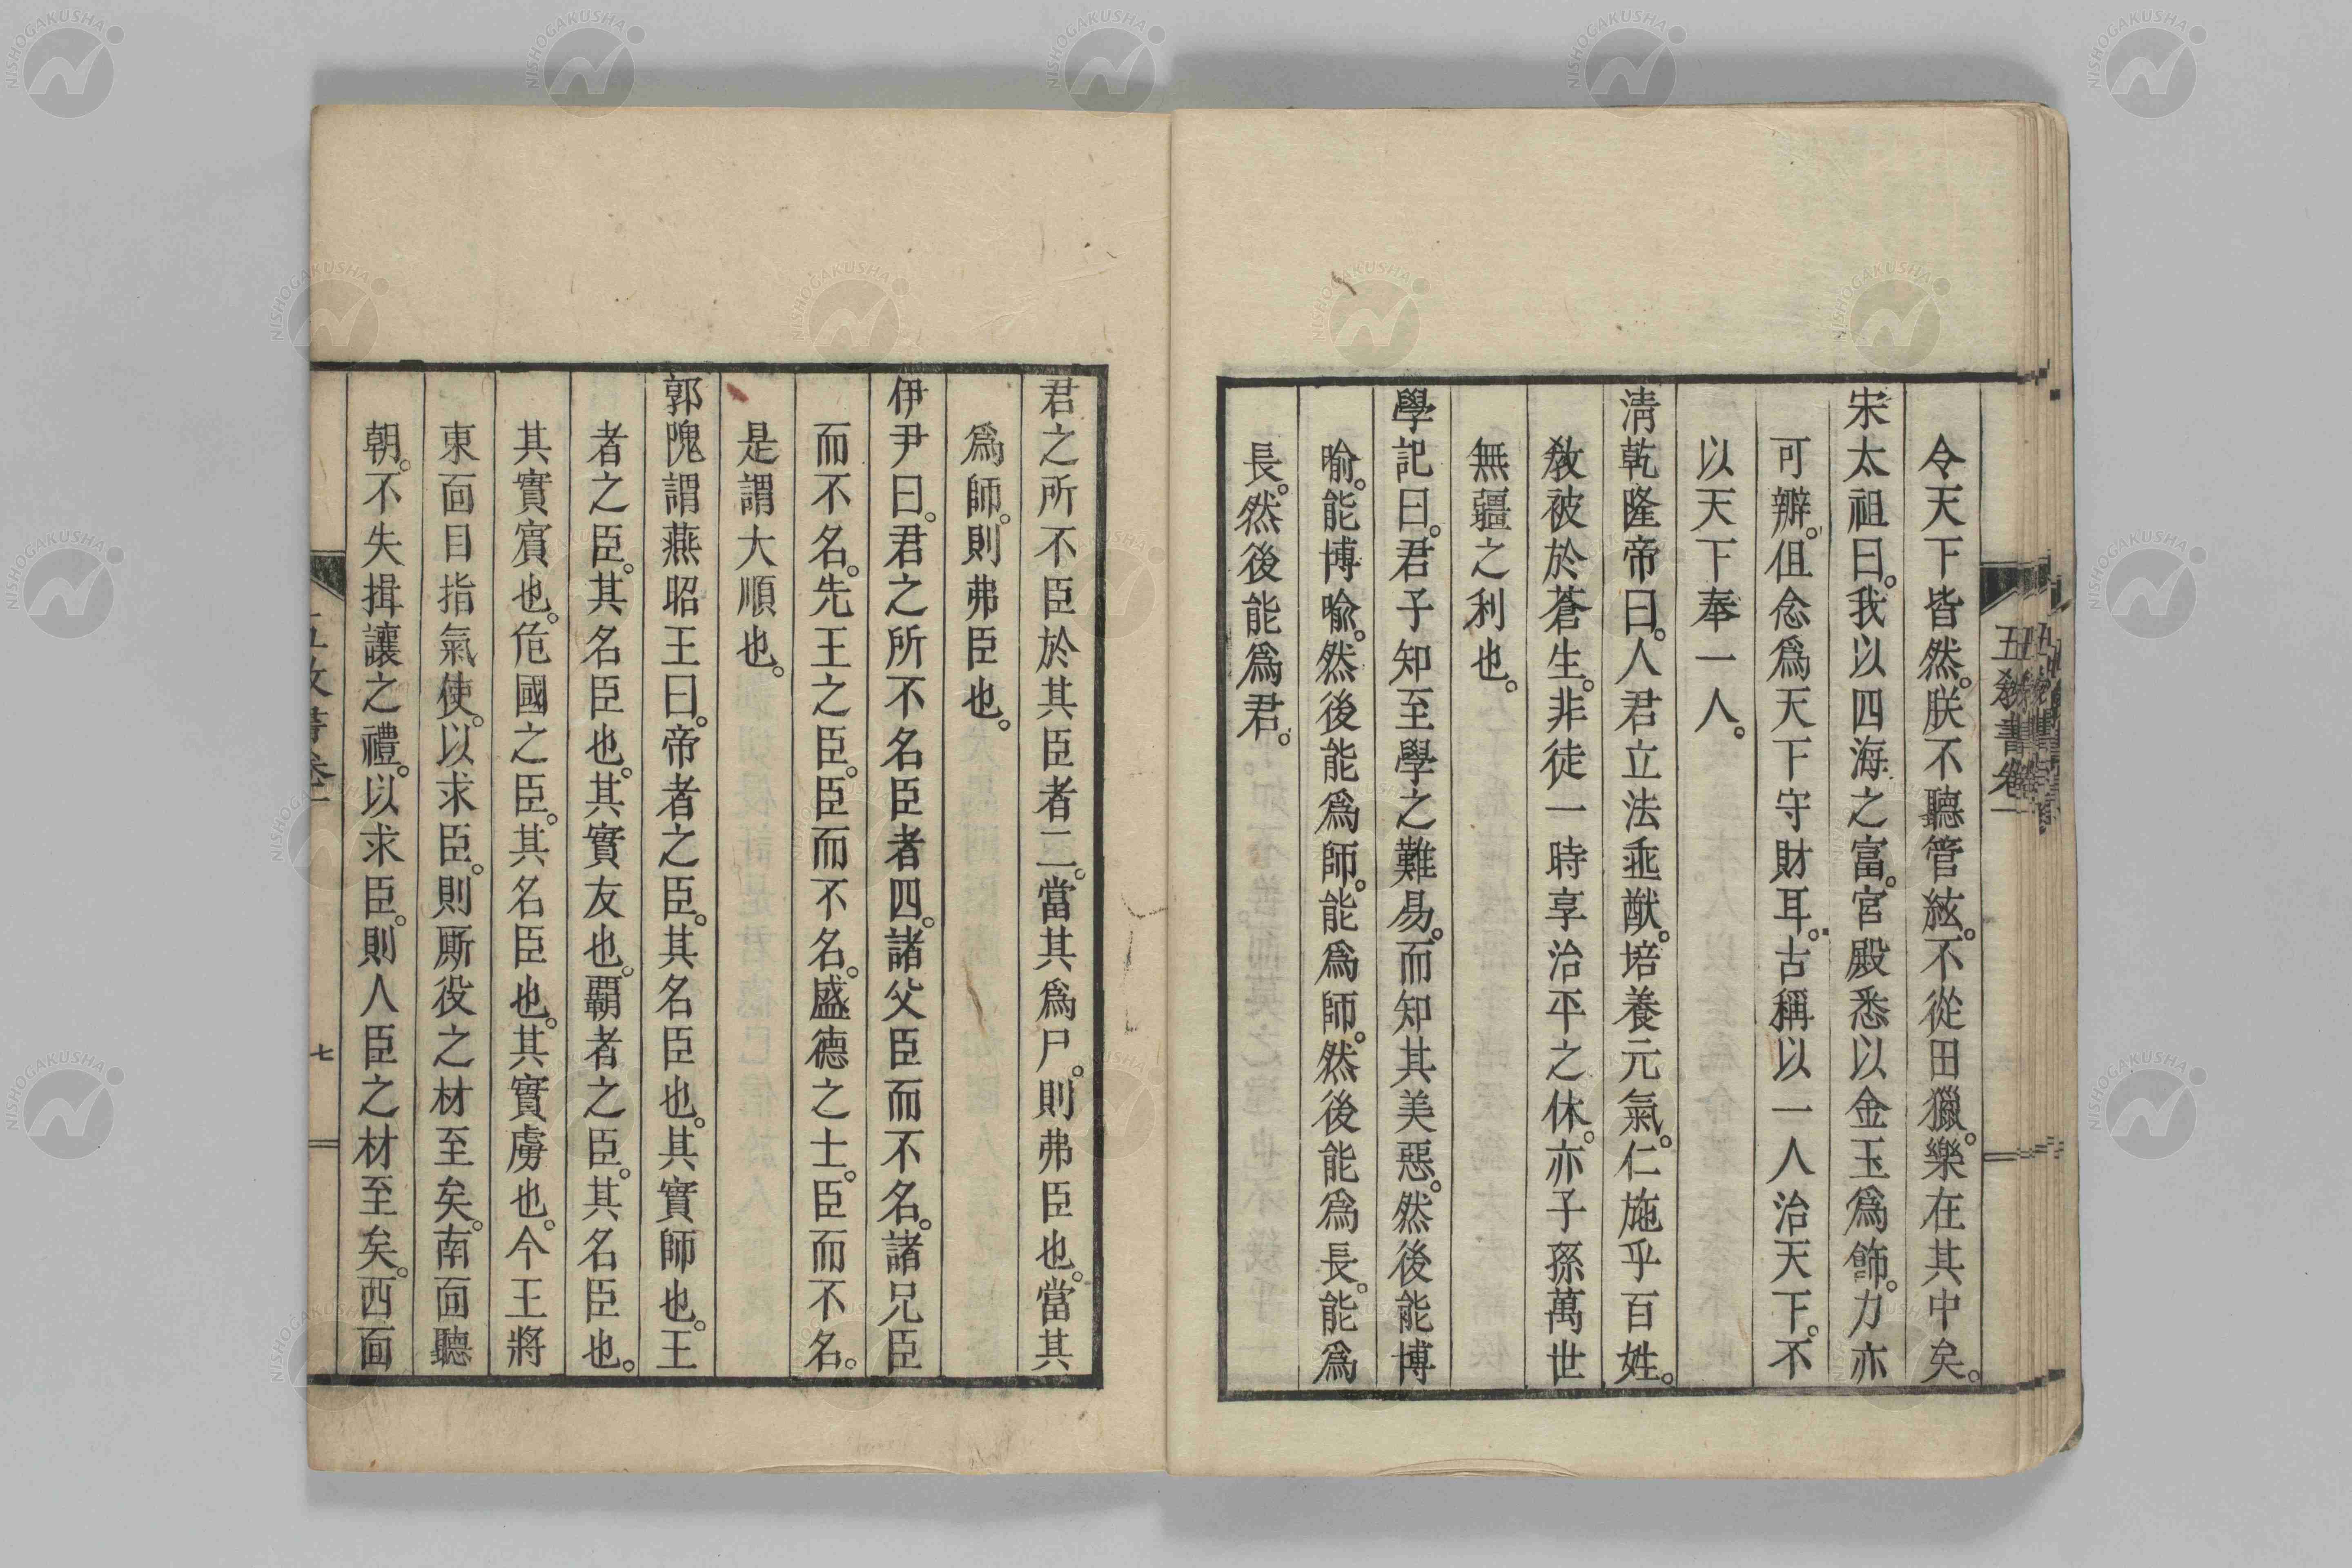 五敎書卷一
令天下皆然。朕不聽管絃。不從田獵。樂在其中矣。
宋太祖曰。我以四海之富。宮殿悉以金玉爲飾。力亦
可辦。但念爲天下守財耳。古稱以一人治天下。不
以天下奉一人。
淸乾隆帝曰。人君立法垂猷。培養元氣。仁施乎百姓。
敎被於蒼生。非徒一時享治平之休。亦子孫萬世
無疆之利也。
學記曰。君子知至學之難易。而知其美惡。然後能博
喻。能博喻。然後能爲師。能爲師。然後能爲長。能爲
長。然後能爲君。
君之所不臣於其臣者二。當其爲尸。則弗臣也。當其
爲師。則弗臣也。
伊尹曰。君之所不名臣者四。諸父臣而不名。諸兄臣
而不名。先王之臣。臣而不名。盛德之士。臣而不名。
是謂大順也。
郭隗謂燕昭王曰。帝者之臣。其名臣也。其實師也。王
者之臣。其名臣也。其實友也。霸者之臣。其名臣也。
其實賓也。危國之臣。其名臣也。其實虜也。今王將
東面目指氣使。以求臣。則厮役之材至矣。南面聽
朝。不失揖讓之禮。以求臣。則人臣之材至矣。西面
七
NISHOGAKUSHA